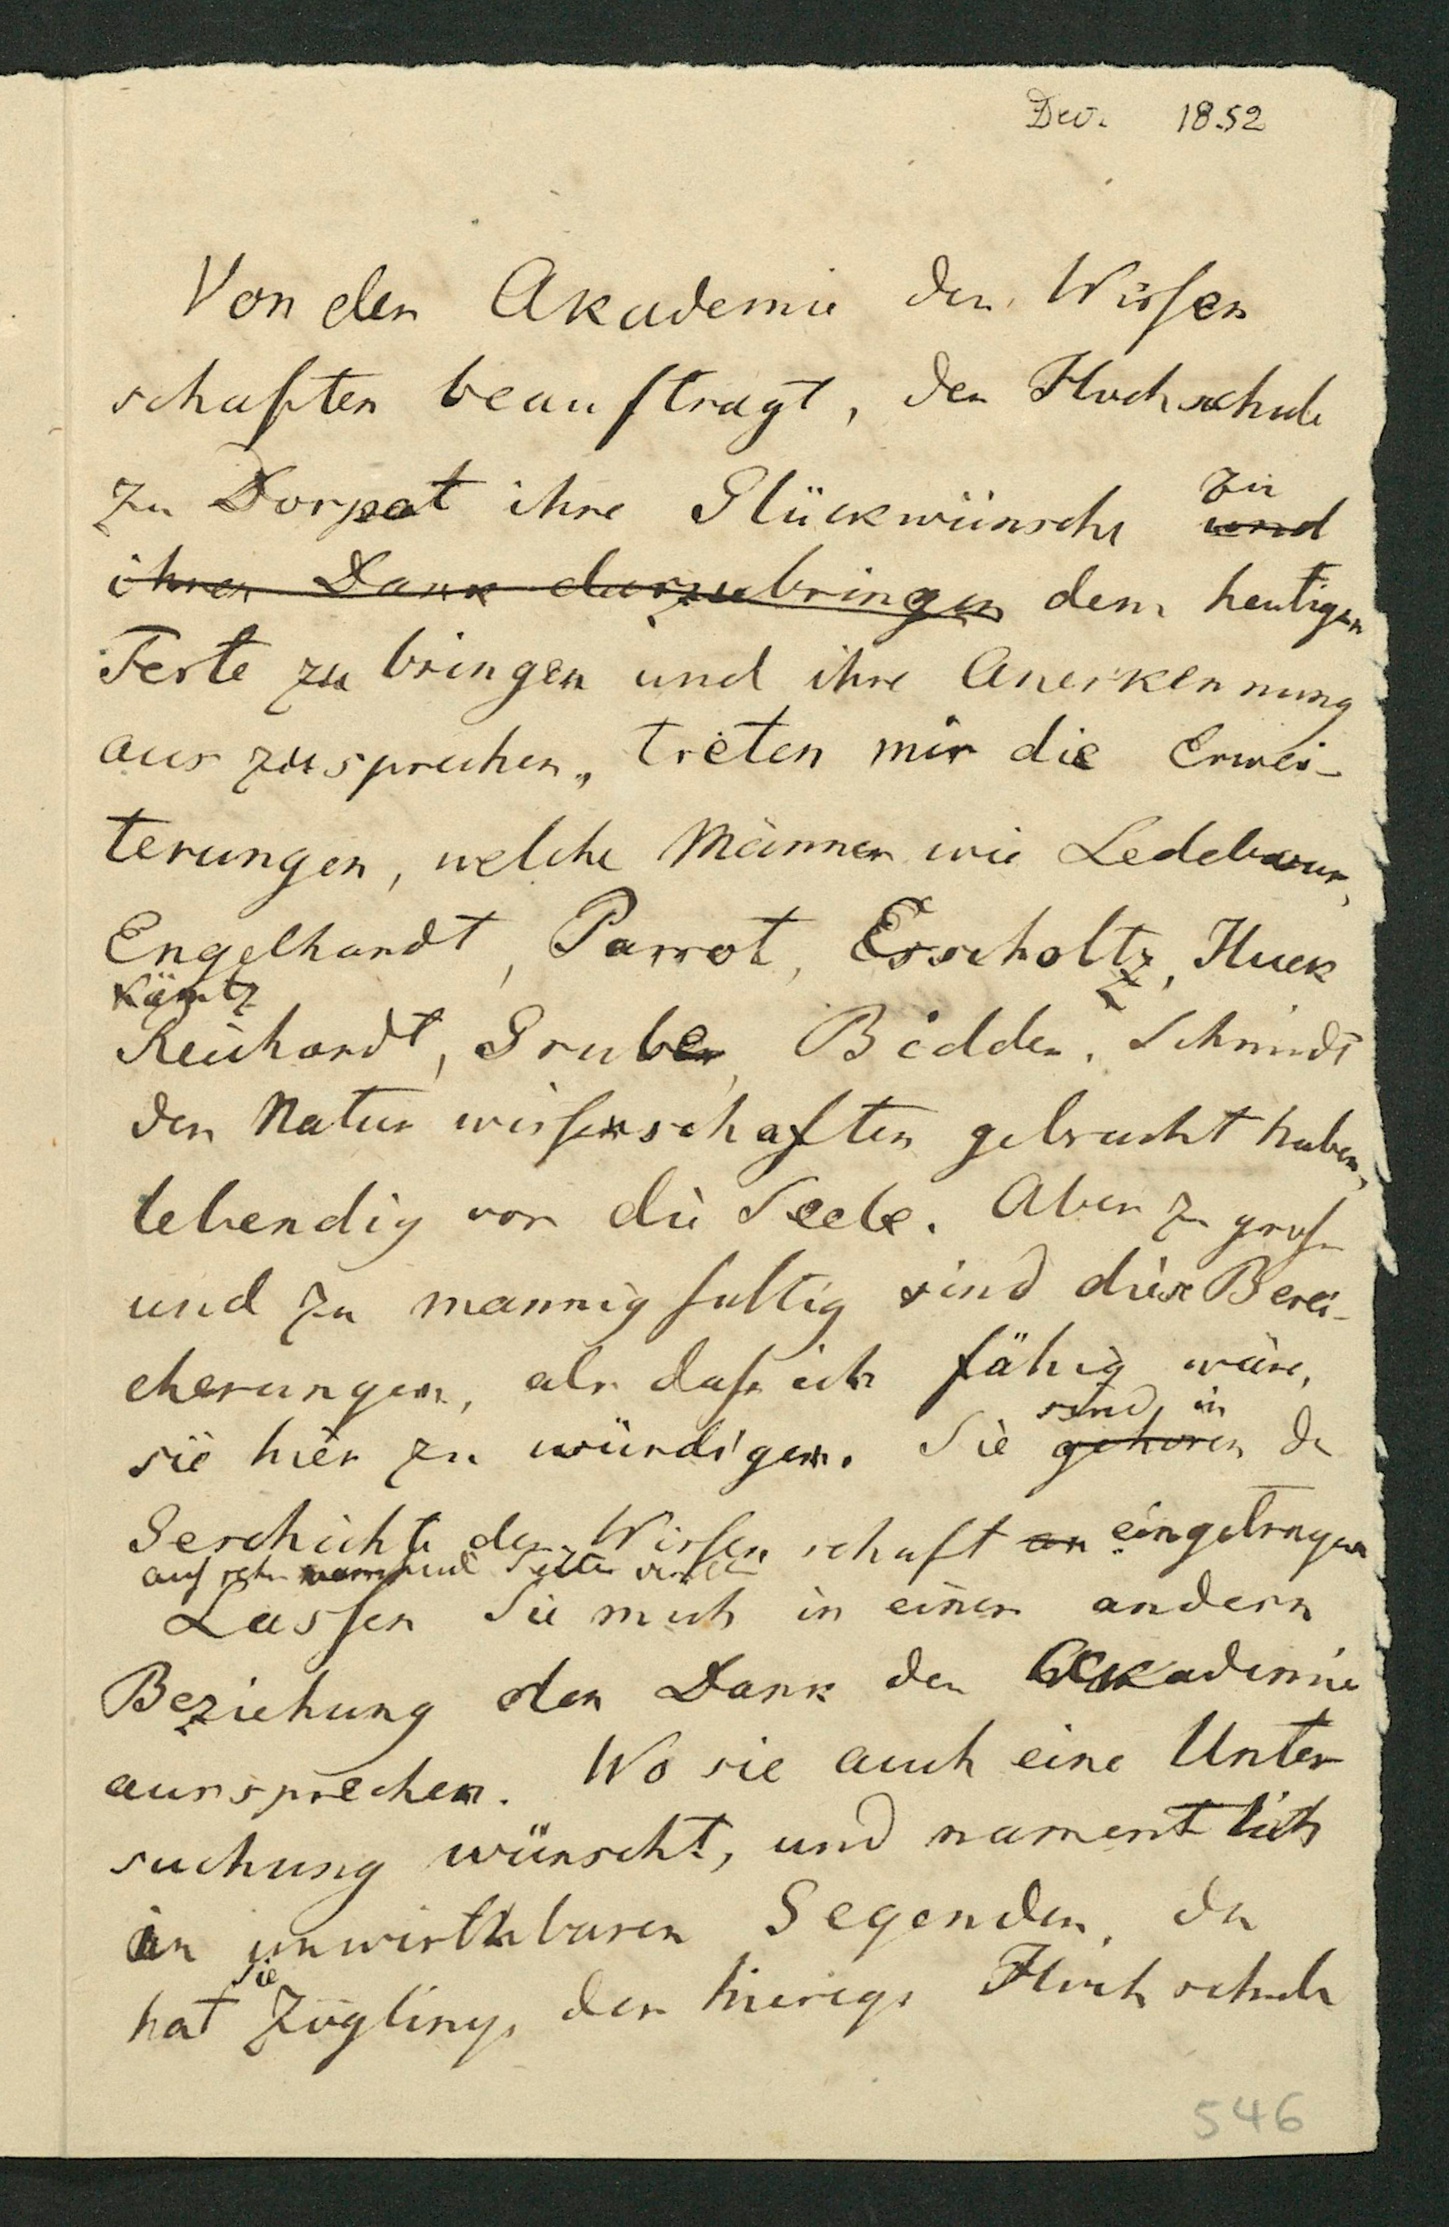 Dec. 1852
Von der Akademie der Wissen
schaften beauftragt, der Hochschule
zu Dorpat ihre Glückwünsche zu
und
ihren Dank darzubringen dem heutigen
Feste zu bringen und ihre Anerkennung
auszusprechen, treten mir die Erwei-
terungen, welche Männer wie Ledebour,
Engelhardt, Parrot, Esscholtz, Huek
Kämtz
Reichardt, Grube, Bidder, Schmidt
den Naturwissenschaften gebracht haben,
lebendig vor die Seele. Aber zu gross
und zu mannigfaltig sind diese Berei-
cherungen, als dass ich fähig wäre,
sind in
sie hier zu würdigen. Sie gehören der
Geschichte der Wissenschaft an eingetragen
auf sehr Seite
Lassen Sie mich in einer andern
Beziehung den Dank der Akademie
aussprechen. Wo sie auch eine Unter
suchung wünscht, und namentlich
in unwirthbaren Gegenden, da
sie
hat Zöglinge der hiesigen Hochschule
546